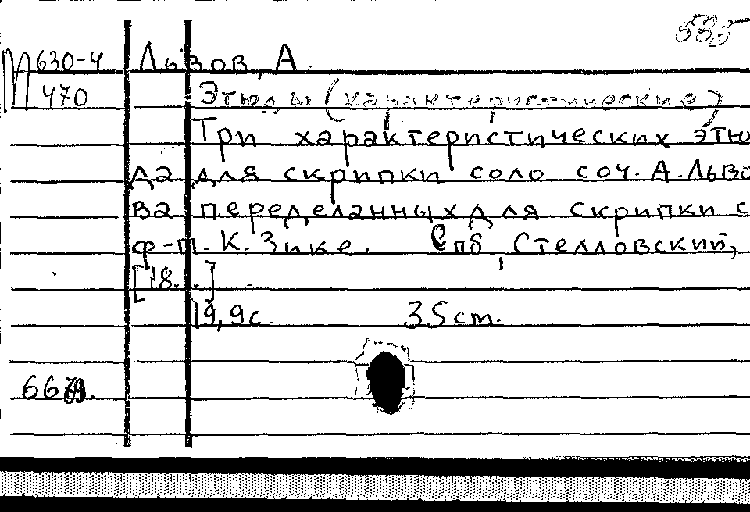 М 630-4 Львов, А.
470 Этюды (характеристические)
Три характеристических этю
да для скрипки соло соч. А. Льво
ва переделанных для скрипки с
ф-п. К. Зике. Спб, Стелловский,
[18..]
19,9с 35 cm.